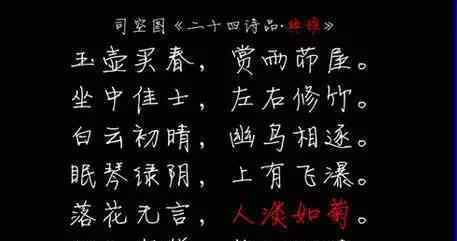 司空图《二十四诗品·典雅》
玉壶买春，赏雨茆屋。
坐中佳士，左右修竹。
白云初晴，幽鸟相逐。
眠琴绿阴，上有飞瀑。
落花无言，人淡如菊。